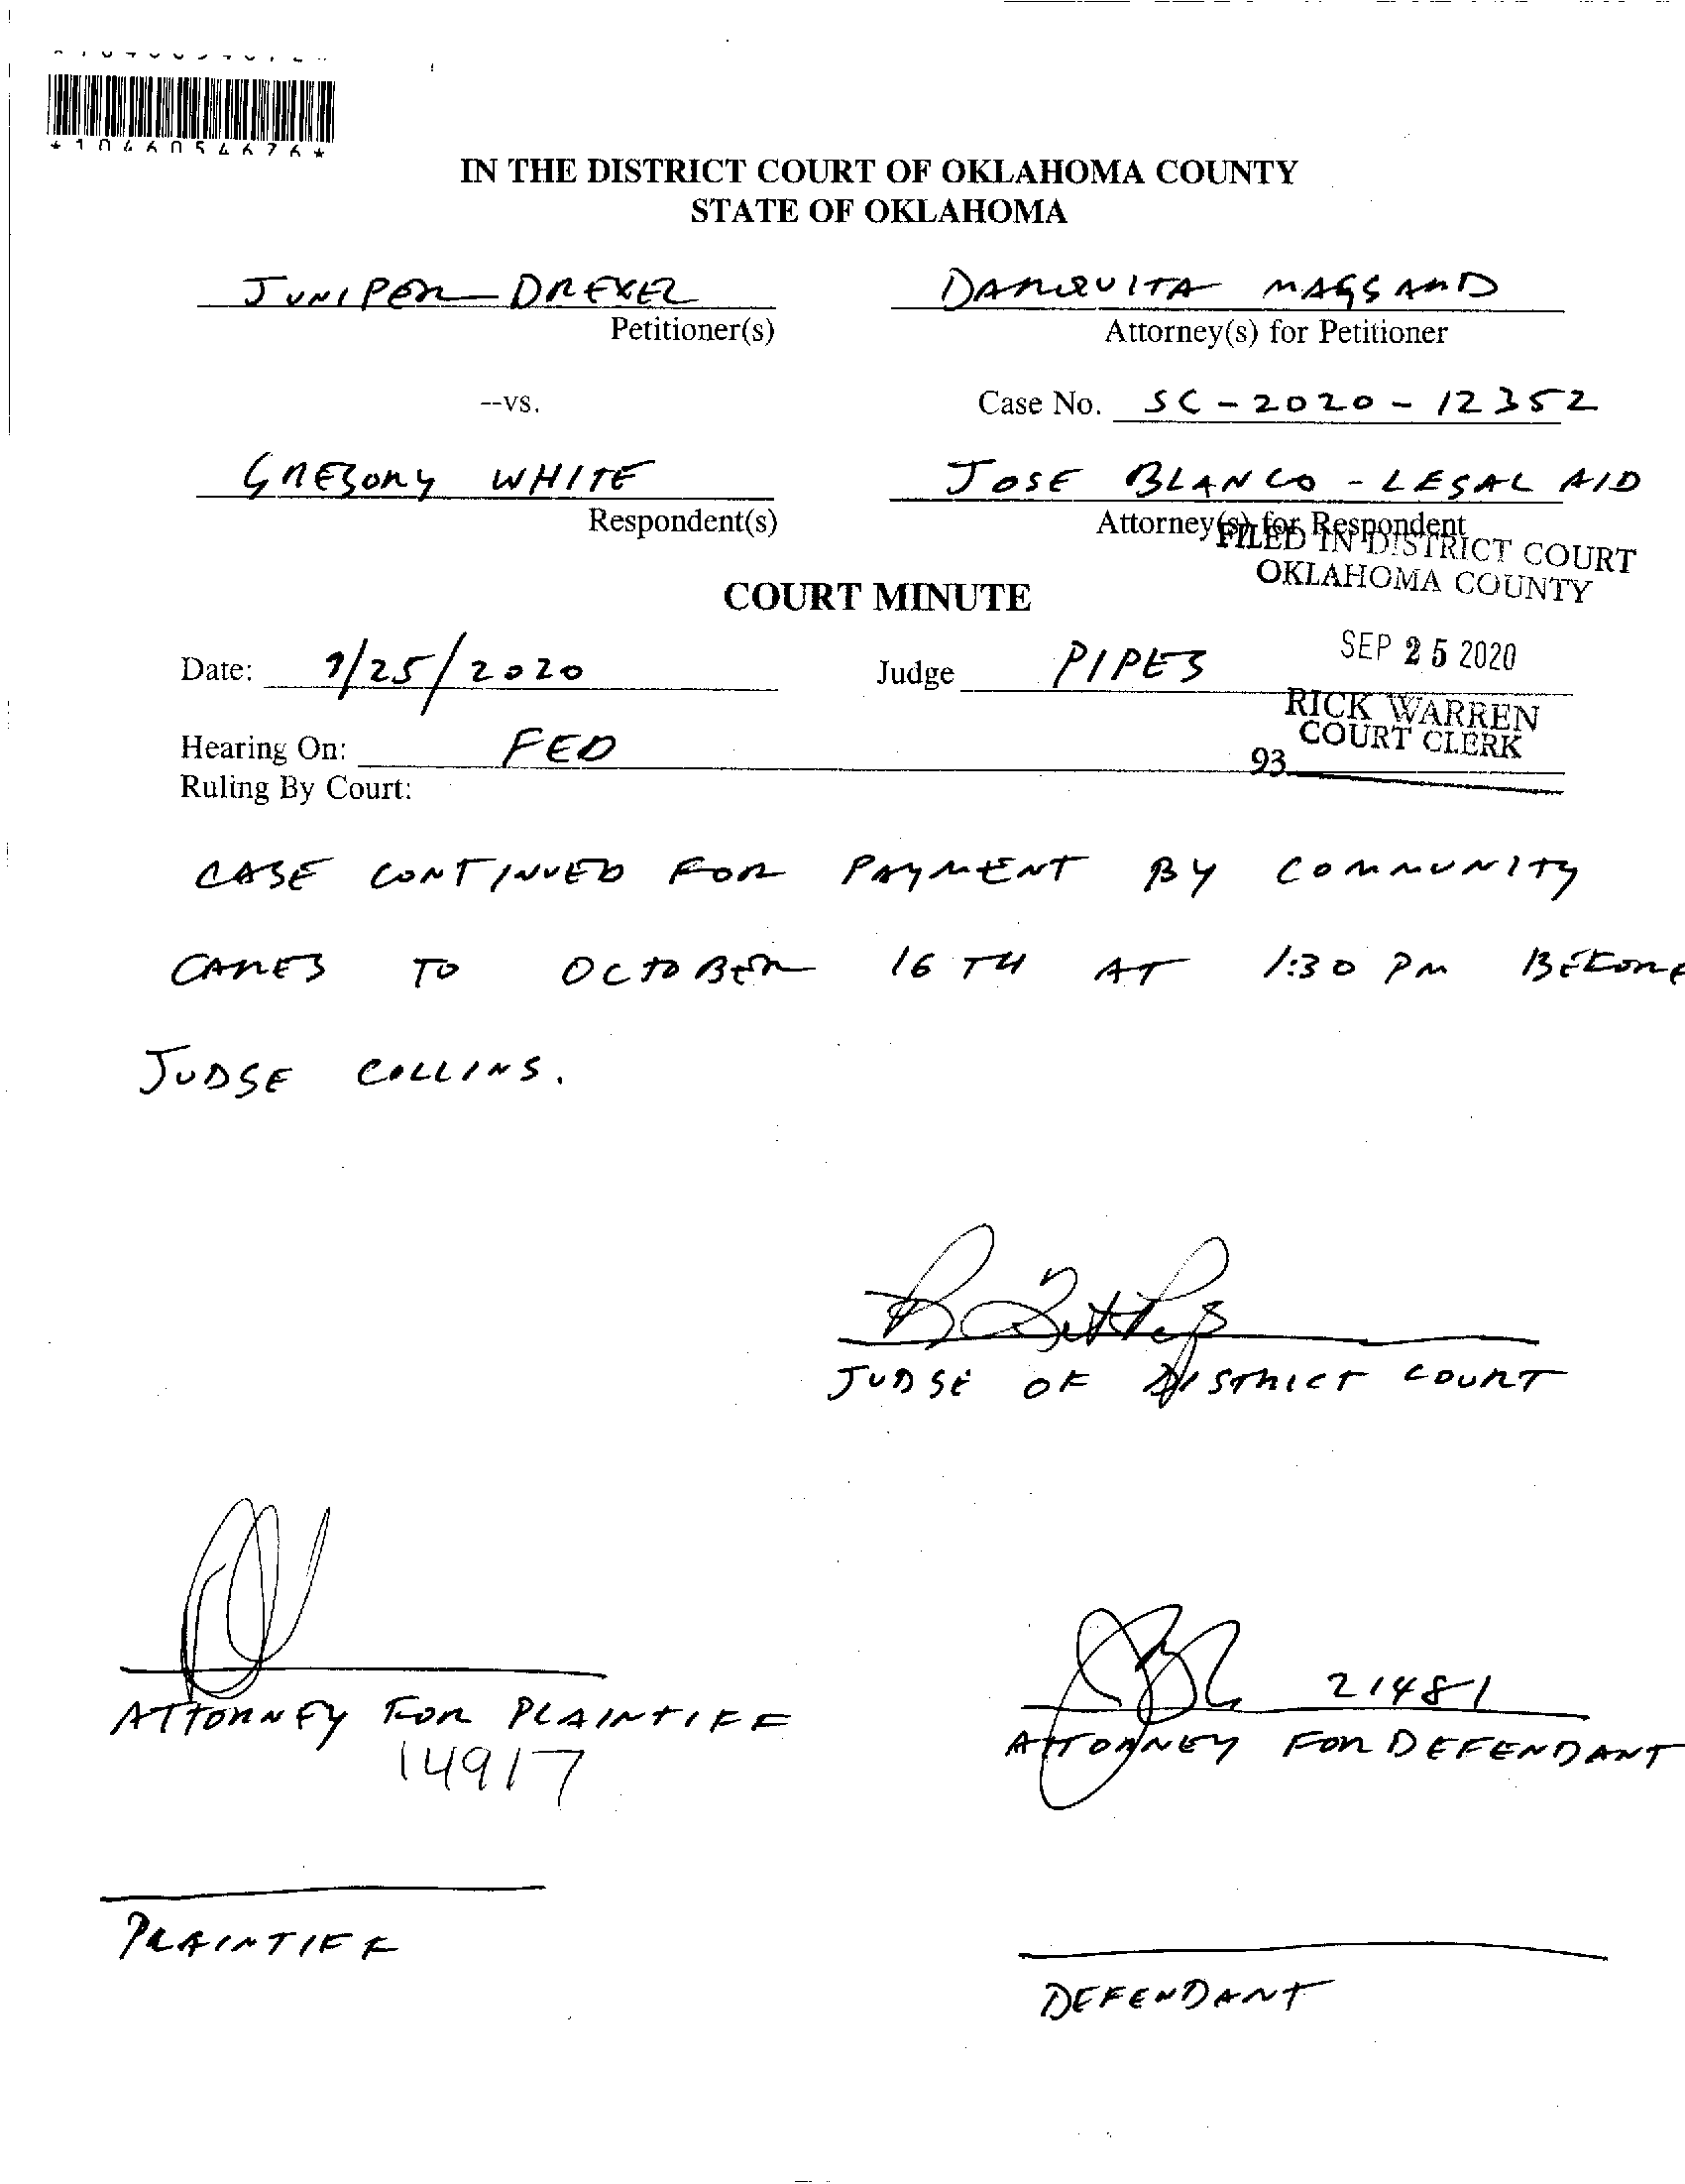 *1046054676*
IN THE DISTRICT COURT OF OKLAHOMA COUNTY
STATE OF OKLAHOMA
JUNIPER DREXEL
Petitioner(s)
DARQUITA MAGGARD
Attorney(s) for Petitioner
--vs.
Case No. SC-2020-12352
GREGORY WHITE
Respondent(s)
JOSE BLANCO - LEGAL AID
Attorney(s) for Respondent
FILED IN DISTRICT COURT
OKLAHOMA COUNTY
COURT MINUTE
SEP 25 2020
Date: 9/25/2020
Judge PIPES
RICK WARREN
COURT CLERK
Hearing On: FED
93
Ruling By Court:
CASE CONTINUED FOR PAYMENT BY COMMUNITY
CARES TO OCTOBER 16TH AT 1:30 PM BEFORE
JUDGE COLLINS.
JUDGE OF DISTRICT COURT
21481
ATTORNEY FOR PLAINTIFF
14917
ATTORNEY FOR DEFENDANT
PLAINTIFF
DEFENDANT